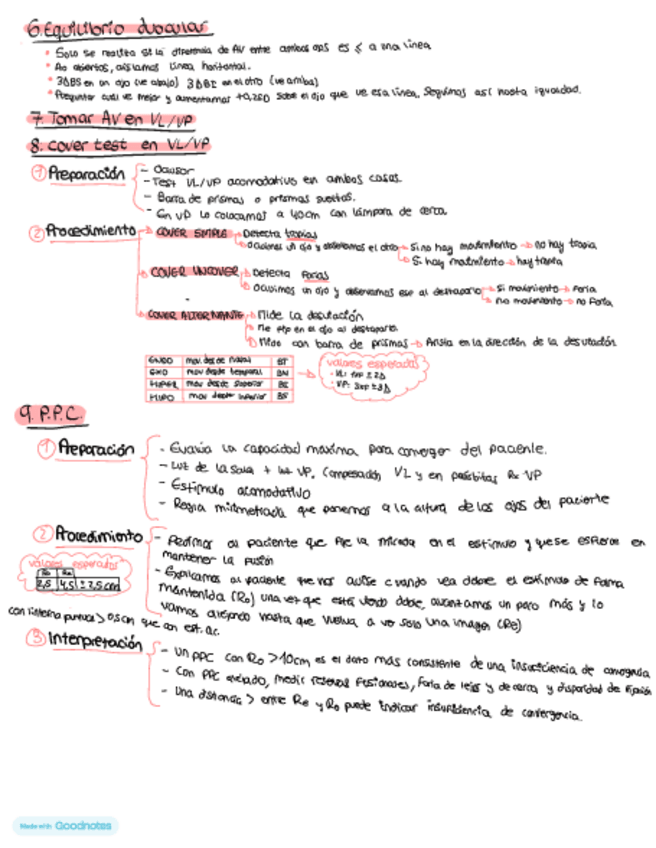 6. Equilibrio binocular
• Solo se realiza si la diferencia de AV entre ambos ojos es ≤ a una línea
• Ao abiertos, aislamos línea horizontal.
• 3ΔBS en un ojo (ve abajo) 3ΔBI en el otro (ve arriba)
• Preguntar cuál ve mejor y aumentamos +0,25D sobre el ojo que ve esa línea. Seguimos así hasta igualdad.
7. Tomar AV en VL/VP
8. Cover test en VL/VP
① Preparación
- Oclusor
- Test VL/VP acomodativo en ambos casos.
- Barra de prismas o prismas sueltos.
- En VP lo colocamos a 40cm con lámpara de cerca.
② Procedimiento
COVER SIMPLE → Detecta tropias
→ Ocluimos un ojo y observamos el otro → Si no hay movimiento → no hay tropia
→ Si hay movimiento → hay tropia
COVER UNCOVER → Detecta forias
→ Ocluimos un ojo y observamos ese al destaparlo → Si movimiento → foria
→ no movimiento → no foria
COVER ALTERNANTE → Mide la desviación
→ Me fijo en el ojo al destaparlo.
→ Mido con barra de prismas → Arista en la dirección de la desviación.
ENDO mov. desde nasal BT
EXO mov desde temporal BN
HIPER mov desde superior BI
HIPO mov desde inferior BS
valores esperados
· VL: 1xf ± 2Δ
· VP: 3xf ± 3Δ
9. P.P.C.
① Preparación
- Evalúa la capacidad máxima para converger del paciente.
- Luz de la sala + luz VP. Compensación VL y en présbitas Rx VP
- Estímulo acomodativo
- Regla milimetrada que ponemos a la altura de los ojos del paciente
② Procedimiento
- Pedimos al paciente que fije la mirada en el estímulo y que se esfuerce en
mantener la fusión
- Explicamos al paciente que nos avise cuando vea doble el estímulo de forma
mantenida (Ro) una vez que esté viendo doble, avanzamos un poco más y lo
vamos alejando hasta que vuelva a ver solo una imagen (Re)
valores esperados
Ro Re
2,5 4,5 ± 2,5 cm
con linterna puntual > 0,5cm que con est. ac.
③ Interpretación
- Un PPC con Ro >10cm es el dato más consistente de una insuficiencia de convergencia
- Con PPC alejado, medir reservas fusionales, foria de lejos y de cerca y disparidad de fijación
- Una distancia > entre Re y Ro puede indicar insuficiencia de convergencia.
Made with Goodnotes